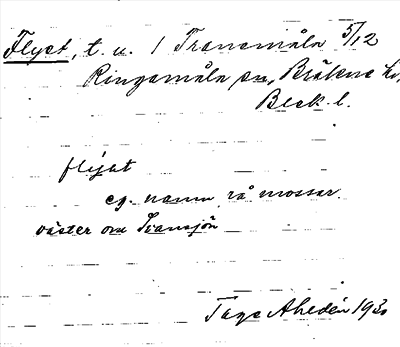 Flyet, t. u. 1 Tranemåla 5/12
Ringamåla sn, Bräkne hd,
Blek. l.
flyjet
eg. namn på mossar
väster om Transjön
Tage Ahldén 1930